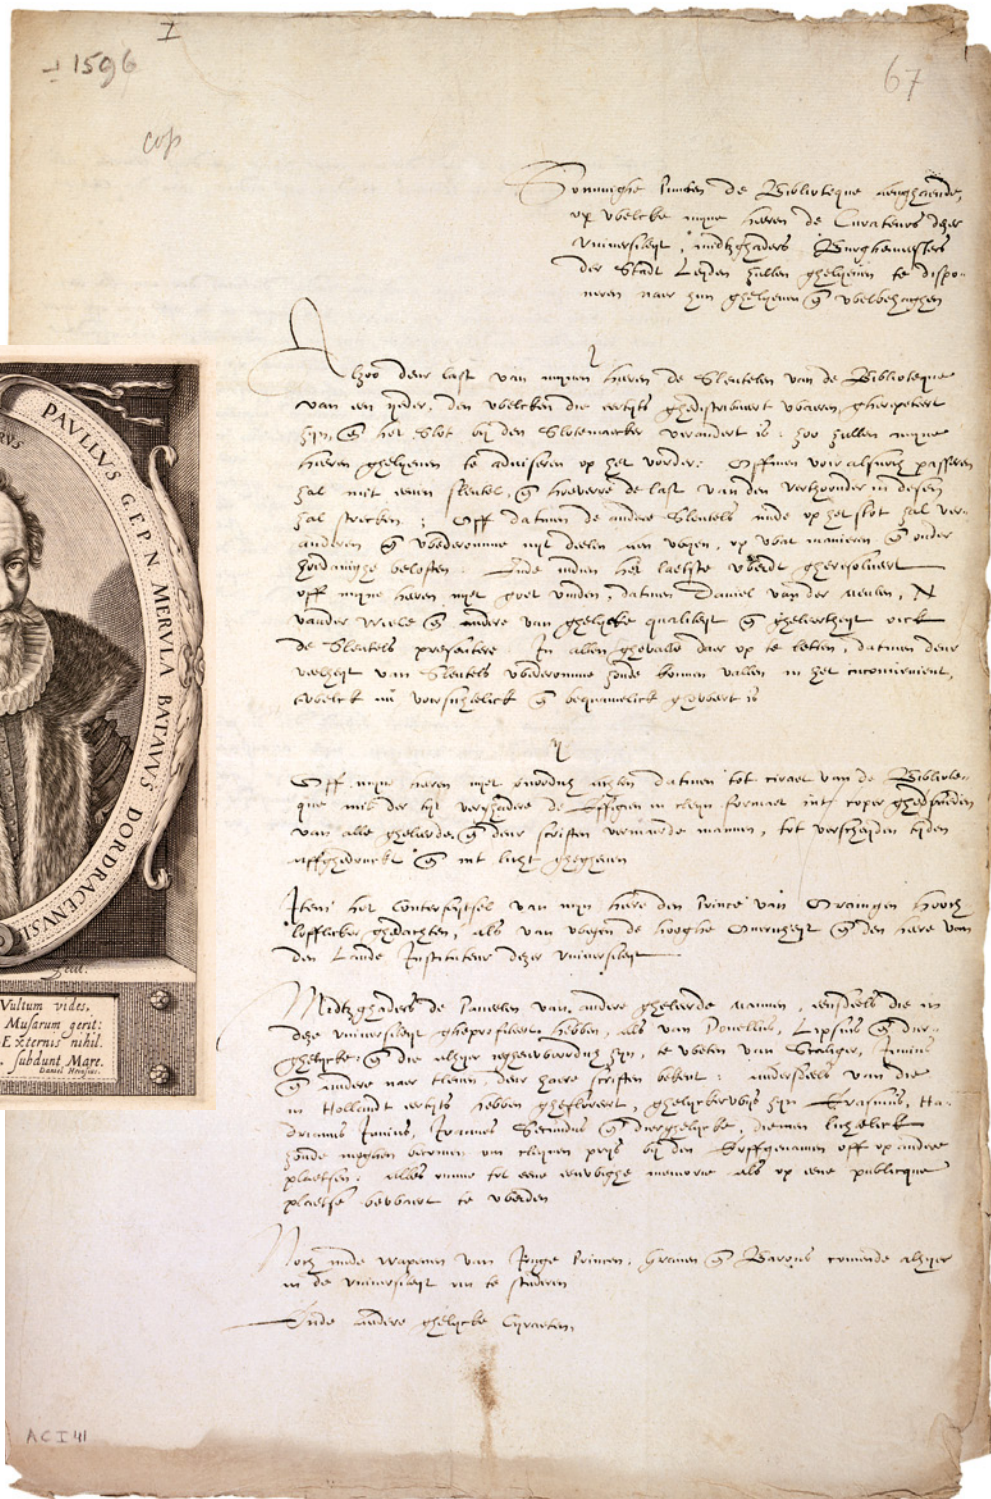 I
± 1596
67
cop
Sommighe Puncten de Biblioteque aengaende,
op welcke mijne heeren de Curateurs deser
Universiteyt, midtsghaders Burghemeesters
der Stadt Leyden zullen ghelieven te dispo-
neren naer hun ghelieven ende welbehaghen
1
Alzoo deur last van mijnen heeren de Sleutelen van de Biblioteque
van een yeder, den welcken die eertyts ghedistribueert waeren, gherepeteert
zijn, ende het Slot bij den Slotemaecker verandert is: zoo zullen mijne
heeren ghelieven te adviseren op het vorder: Offmen voir alsnoch passeren
zal mit eenen sleutel, ende hoeverre de last van den verthoonder in desen
zal strecken; Off datmen de andere Sleutels mede op het slot zal ver-
anderen ende wederomme uyt deelen aen wyen, op wat manieren ende onder
hoedanighe beloften. Ende indien het laetste werdt gheresolveert
off mijne heeren niet goet vinden, datmen Daniel van der Meulen, N
vander Miele ende andere van ghelycke qualiteyt ende gheleertheyt oick
de Sleutels presentere. In allen ghevalle daer op te letten, datmen deur
veelheyt van Sleutels wederomme zoude komen vallen in het inconvenient,
twelck nu voorsichtelick ende bequamelick gheweert is
2
Off mijne heeren niet oirdich achten datmen tot cieraet van de Bibliote-
que mit der tijt vergadere de Effigien in cleyn formaet int coper ghesneden
van alle gheleerde, ende deur scriften vermaerde mannen, tot verscheyden tyden
affghedruckt ende int licht ghegheven
Item het Conterfeytsel van mijn heere den Prince van Oraingen hooch
lofflicker ghedachten, als van weghen de hooghe Overicheyt ende den heere van
den Lande Instituteur deser Universiteyt
Midtsghaders de Pourtraicten van andere gheleerde mannen, eensdeels die in
dese Universiteyt gheprofiteert hebben, als van Donellus, Lipsius ende dier-
ghelycke: ende die alhyer teghenwoordich zijn, te weten van Scaliger, Junius
ende andere naer tleven, deur haere scriften bekent: andersdeels van die
in Hollandt eertyts hebben ghefloreert, ghelyckerwijs zijn Erasmus, Ha-
drianus Junius, Joannes Secundus ende dierghelycke, diemen lichtelick
zoude moghen becomen om cleynen prys bij den Erffgenamen off op andere
plaetsen: alles omme tot eene eeuwighe memorie als op eene publicque
plaetse bewaert te werden
Noch mede wapenen van Jonge Princen, Graven ende Barons comende alhyer
in de Universiteyt om te studeren
Ende andere ghelycke Cyraeten
RVS
PAVLLVS G.F.P.N. MERVLA BATAVVS DORDRACENSIS
Vultum vides,
Musarum gerit:
Externis nihil.
subdunt Mare.
Daniel Heinsius.
AC I 41